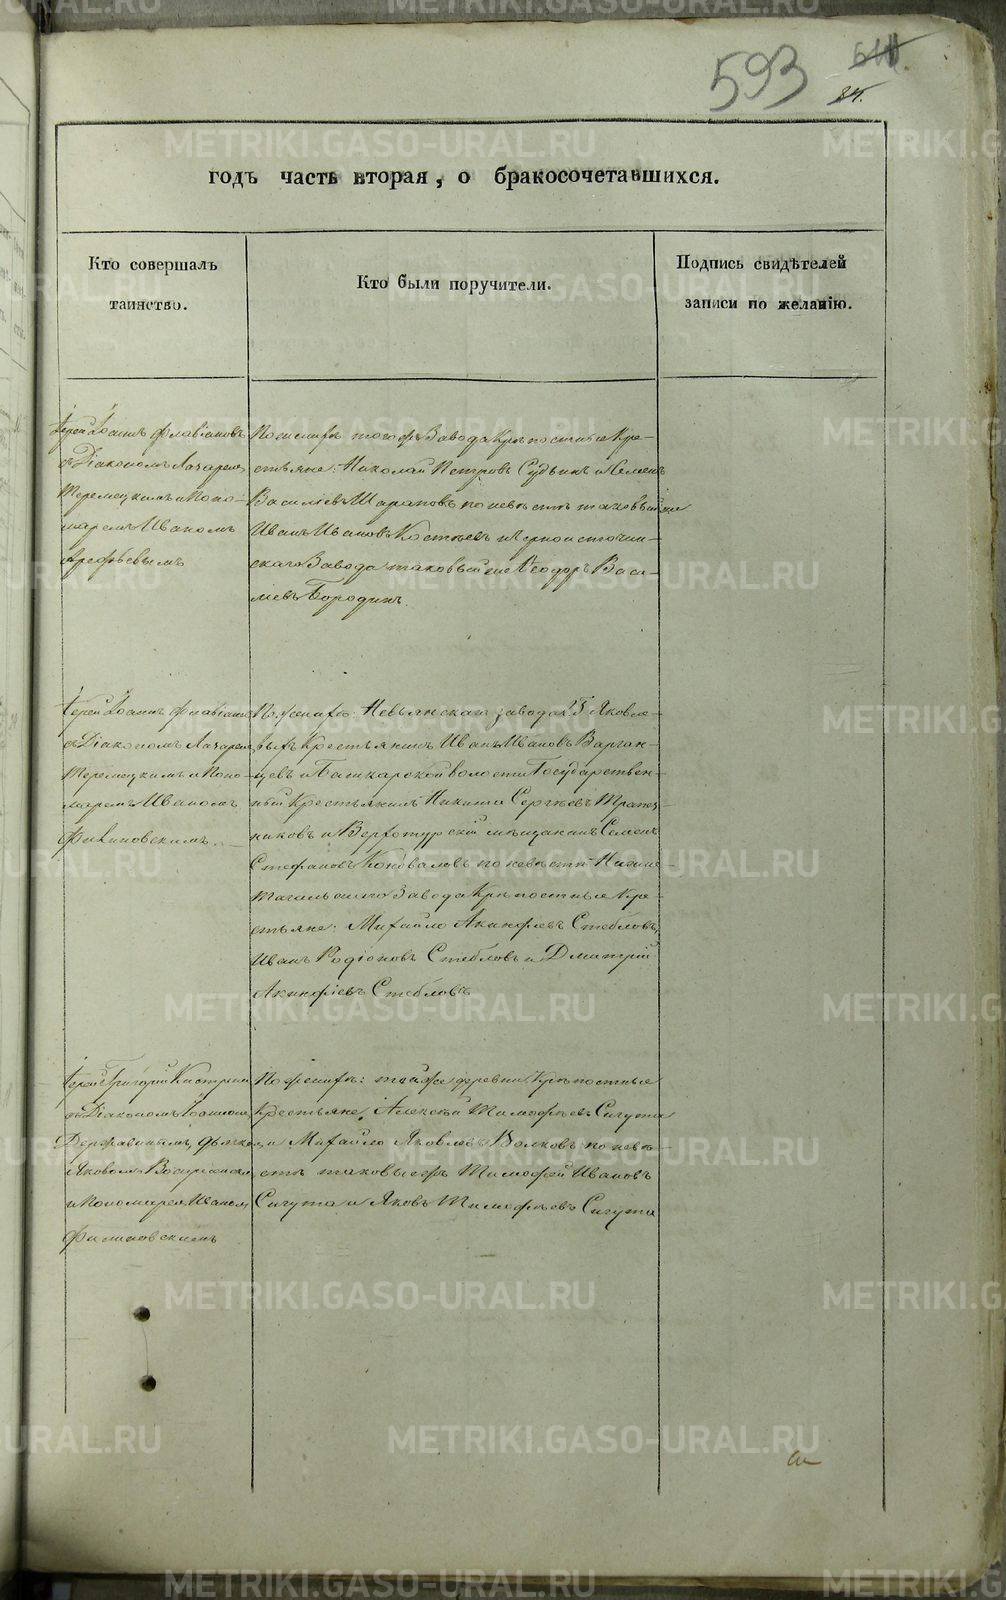 593
84.
годъ часть вторая, о бракосочетавшихся.
Кто совершалъ
таинство.
Кто были поручители.
Подпись свидѣтелей
записи по желанію.
Іерей Іоаннъ Флавіановъ
съ Діакономъ Лазаремъ
Теремецкимъ и Поно-
маремъ Иваномъ
Арефьевымъ
По женихѣ тогожъ Завода Крѣпостные Кре-
стьяне: Николай Петровъ Судьинъ и Семенъ
Василіевъ Шараповъ по невѣстѣ таковый же
Иванъ Ивановъ Костѣевъ и Черноисточин-
скаго Завода таковый же Ѳеодоръ Васи-
льевъ Бородинъ.
Іерей Іоаннъ Флавіановъ
съ Діакономъ Лазаремъ
Теремецкимъ и Поно-
маремъ Иваномъ
Филиновскимъ.
По женихѣ: Невьянскаго завода Г. Яковле-
выхъ Крестьянинъ Иванъ Ивановъ Варган-
цевъ и Башкарской волости Государствен-
ный Крестьянинъ Никита Сергѣевъ Трапез-
никовъ и Верхотурскій мѣщанинъ Семенъ
Стефановъ Коноваловъ по невѣстѣ Нижне-
тагильскаго Завода Крѣпостные Кре-
стьяне: Михайло Акинфіевъ Стебловъ,
Иванъ Родіоновъ Стебловъ и Дмитрій
Акинфіевъ Стебловъ
Іерей Григорій
съ Діакономъ Іоанномъ
Державинымъ, дьячкомъ
Яковомъ
и Пономаремъ Иваномъ
Филиновскимъ
По женихѣ: тойже деревни Крѣпостные
Крестьяне: Алексѣй Тимофѣевъ Сигута
и Михайло Яковлевъ Волковъ по невѣ-
стѣ таковыежъ Тимофей Ивановъ
Сигута и Яковъ Тимофѣевъ Сигута
METRIKI.GASO-URAL.RU